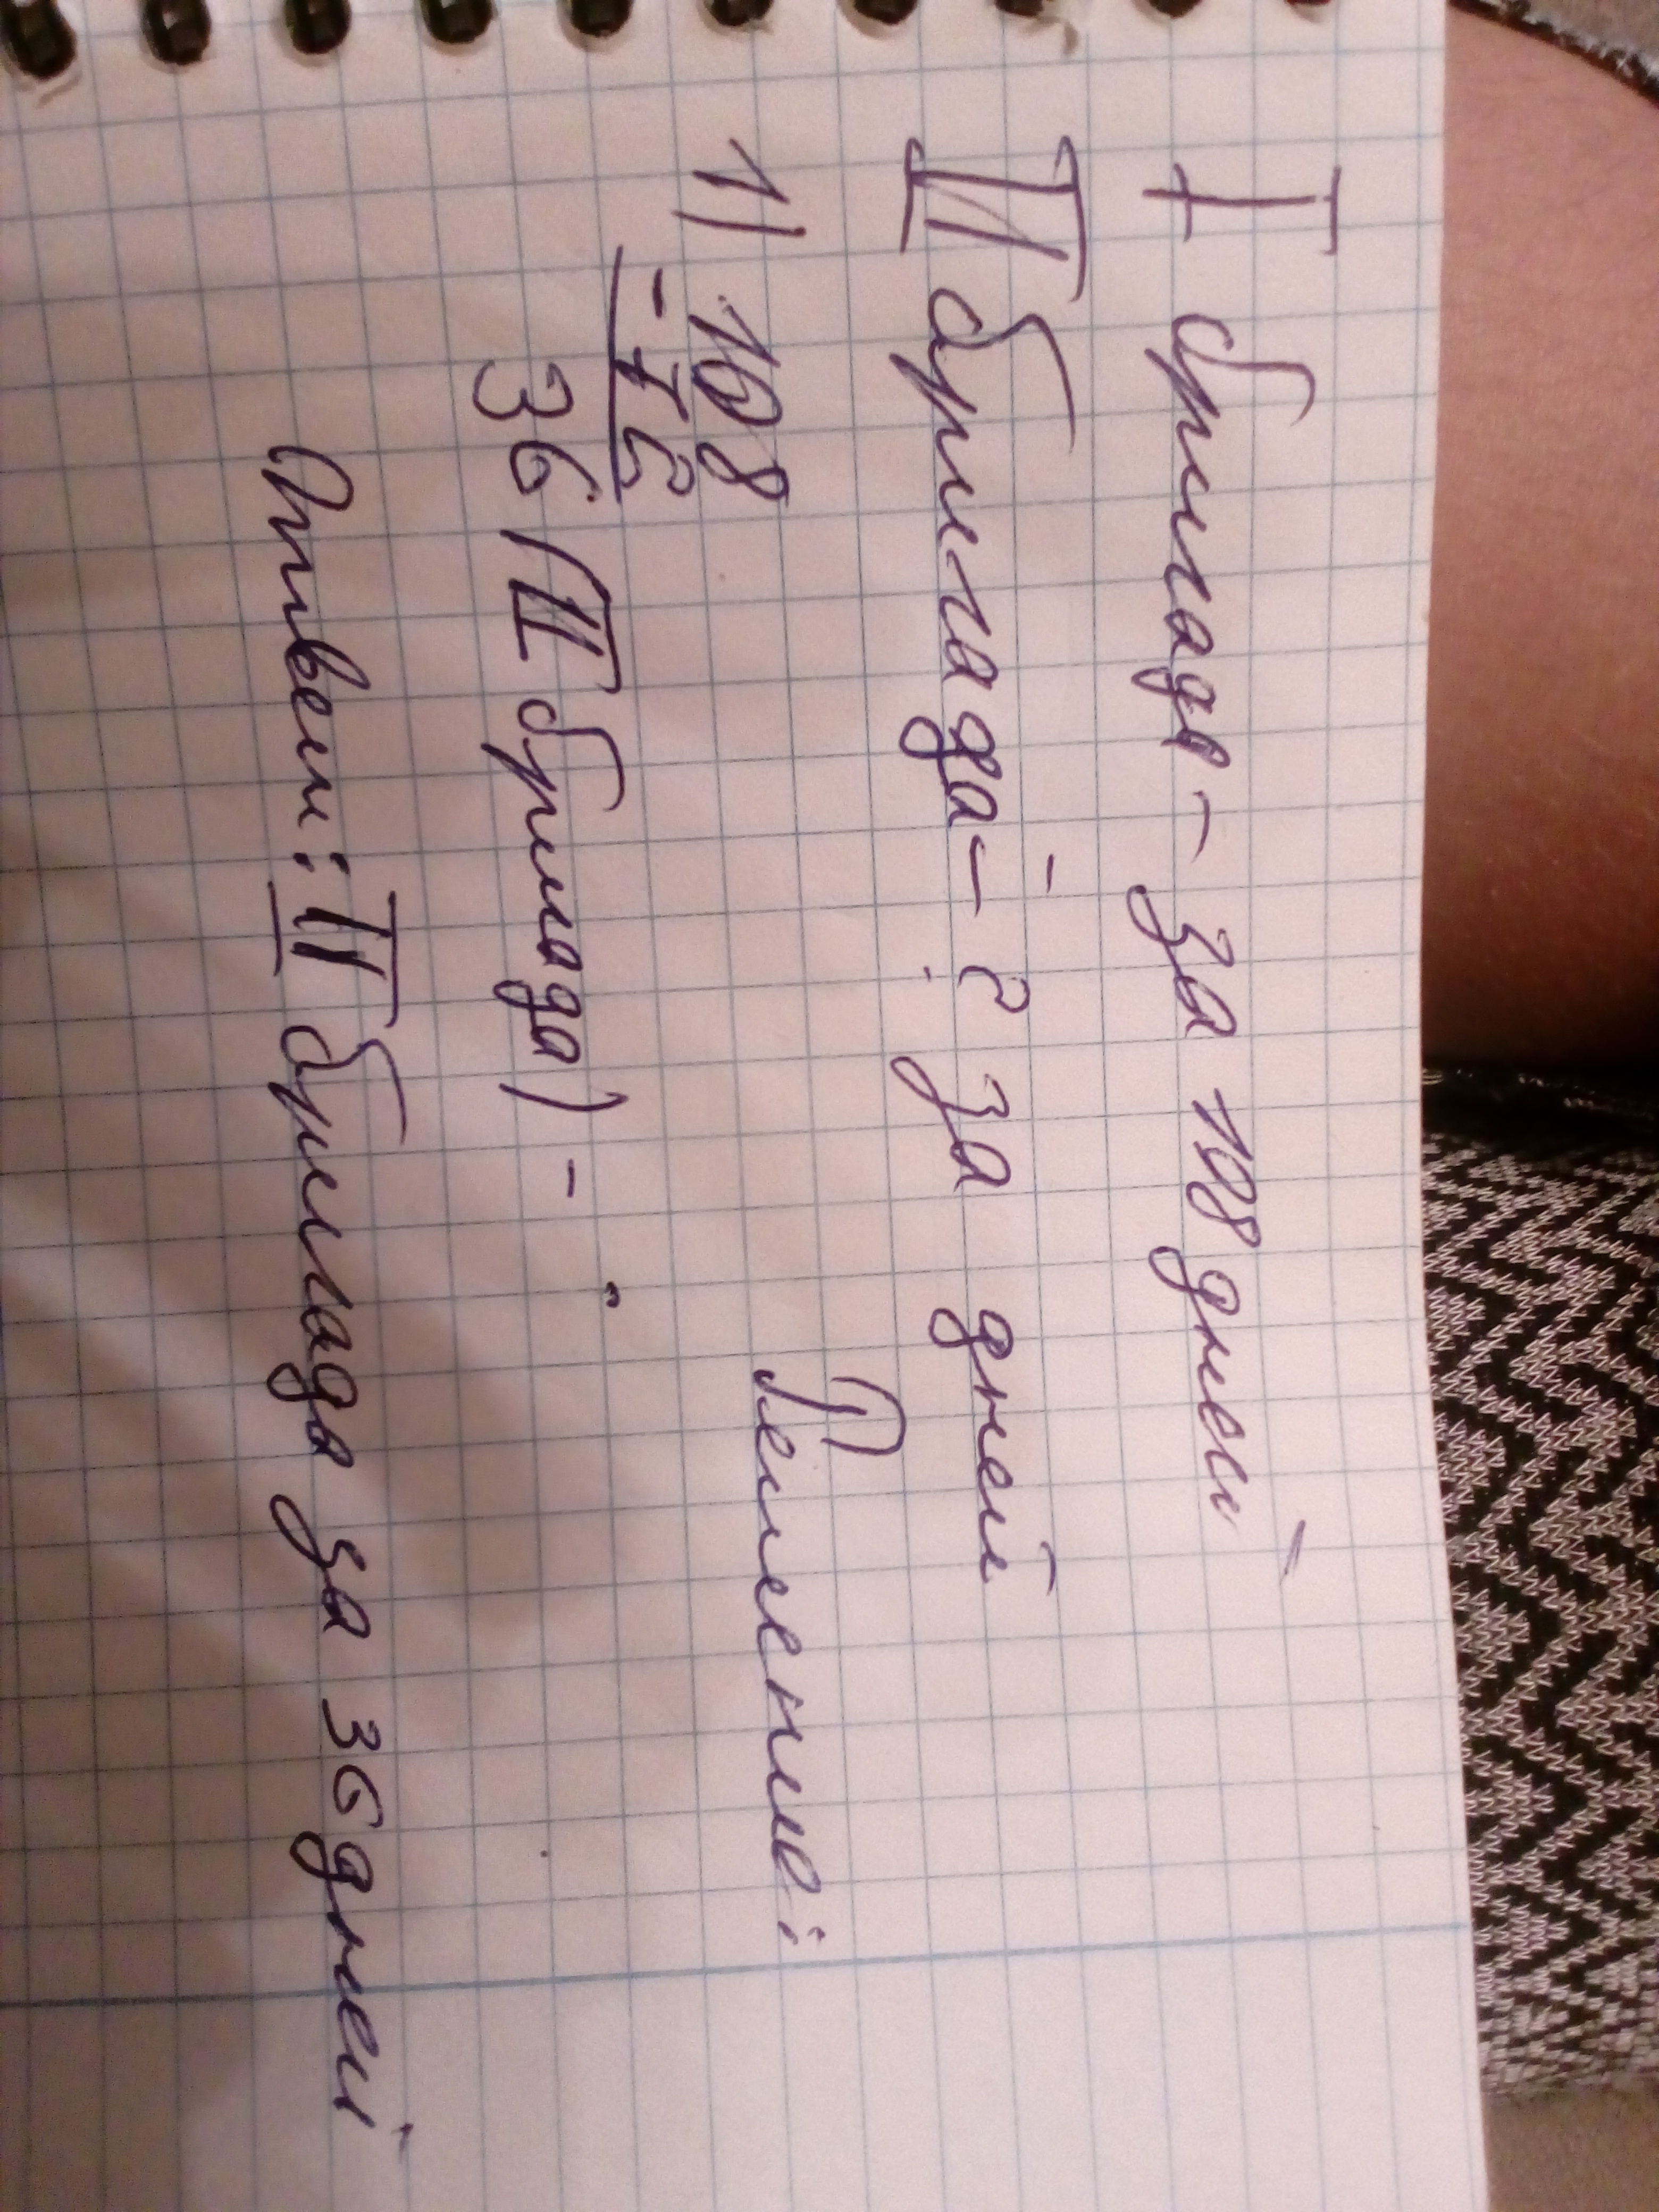 I бригада - за 108 дней
II бригада - ? за дней
Решение:
1) 108
- 72
36 (II бригада) -
Ответ: II бригада за 36 дней